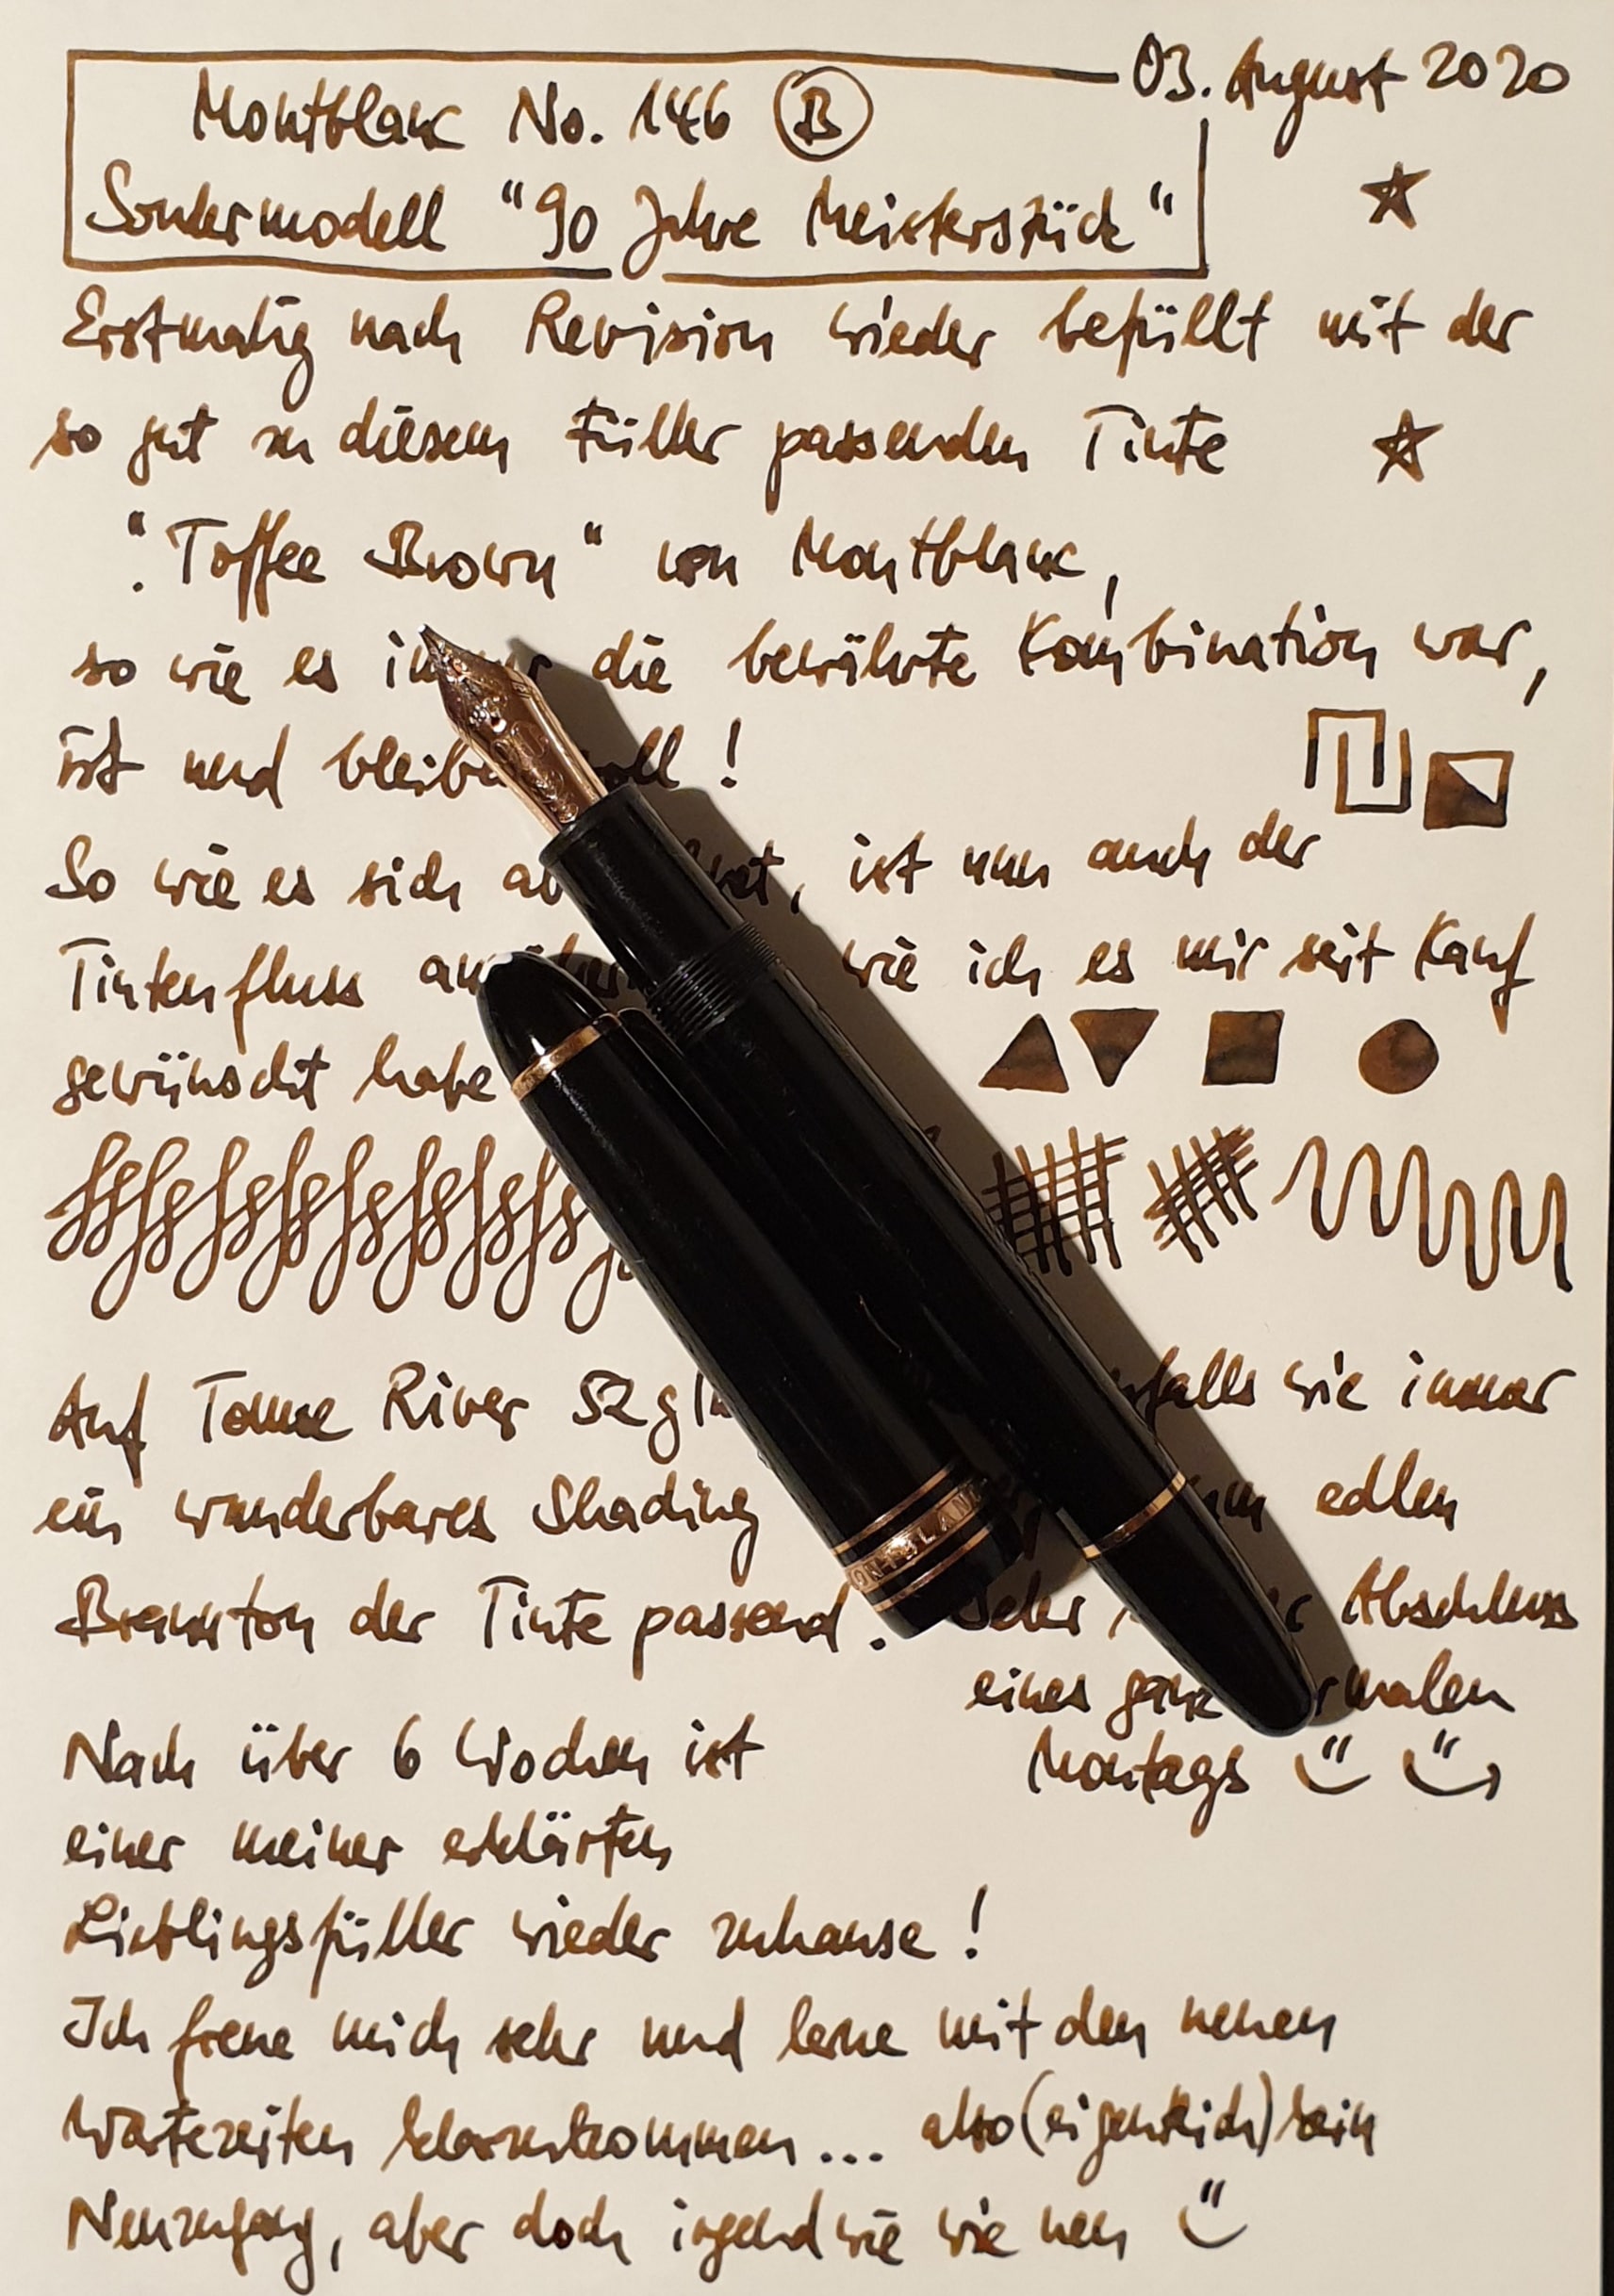 03. August 2020
Montblanc No. 146 B
Sondermodell "90 Jahre Meisterstück"
Erstmalig nach Revision wieder befüllt mit der
so gut zu diesem Füller passenden Tinte
"Toffee Brown" von Montblanc,
so wie es immer die bewährte Kombination war,
ist und bleiben soll!
So wie es sich ab hat, ist nun auch der
Tintenfluss wie ich es mir seit Kauf
gewünscht habe
Auf Tomoe River 52 g wie immer
ein wunderbares Shading edlen
Braunton der Tinte passend. Sehr Abschluss
eines ganz normalen
Montags
Nach über 6 Wochen ist
einer meiner erklärten
Lieblingsfüller wieder zuhause!
Ich freue mich sehr und lerne mit den neuen
Wartezeiten klarzukommen... also (eigentlich) kein
Neuzugang, aber doch irgendwie wie neu
MONTBLANC